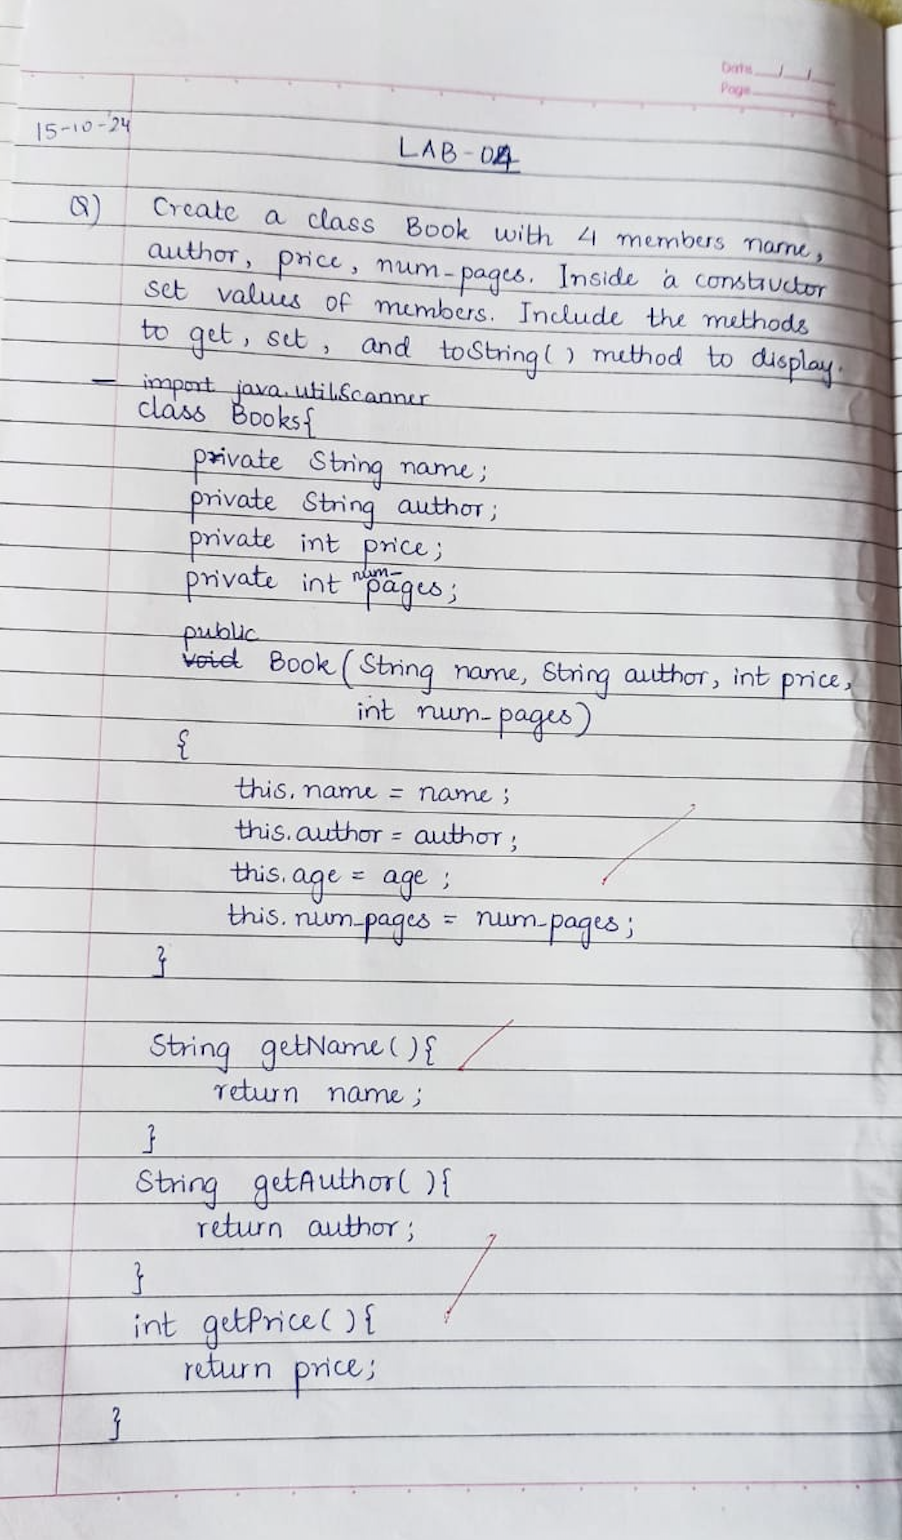 Date / /
Page
15-10-'24
LAB-04
Q) Create a class Book with 4 members name,
author, price, num-pages. Inside a constructor
set values of members. Include the methods
to get, set, and toString() method to display.
— import java.util.Scanner
class Books{
private String name;
private String author;
private int price;
private int num-pages;
public
void Book (String name, String author, int price,
int num-pages)
{
this.name = name;
this.author = author;
this.age = age;
this.num-pages = num-pages;
}
String getName(){
return name;
}
String getAuthor(){
return author;
}
int getPrice(){
return price;
}